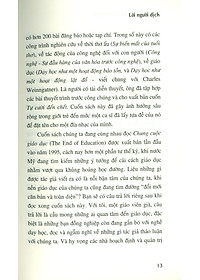 Lời người dịch
có hơn 200 bài đăng báo hoặc tạp chí. Trong số này có các
công trình nghiên cứu về thời thơ ấu (Sự biến mất của tuổi
thơ), về tác động của công nghệ đối với con người (Công
nghệ - Sự đầu hàng của văn hóa trước công nghệ), về giáo
dục (Dạy học như một hoạt động bảo tồn, và Dạy học như
một hoạt động lật đổ - viết chung với Charles
Weinngartner). Là người có tài diễn thuyết, ông đã tập hợp
các bài thuyết trình trước công chúng và cho xuất bản cuốn
Tự cười đến chết. Cuốn sách này đã gây ảnh hưởng sâu
rộng trong giới trẻ đến mức một ca sĩ đã lấy tựa đề của nó
để đặt tên cho một đĩa nhạc của mình.
Cuốn sách chúng ta đang cùng nhau đọc Chung cuộc
giáo dục (The End of Education) được xuất bản lần đầu
vào năm 1995, cách nay hơn một phần tư thế kỷ, khi nước
Mỹ đang tìm kiếm những ý tưởng để cải cách giáo dục
nhằm vượt qua khủng hoảng học đường. Liệu những gì
được tác giả viết ra có là nỗi bận tâm của chúng ta, khi
chúng ta đang lay hoay với công cuộc mang tên "đổi mới
căn bản và toàn diện"? Bạn sẽ có câu trả lời riêng sau khi
đọc xong cuốn sách. Đối với tôi, một giáo viên già, câu
trả lời là mong những ai quan tâm đến giáo dục, đặc
biệt là những bạn đồng nghiệp còn đang gắn bó với nghề
dạy học, đọc và ngẫm nghĩ về những gì tác giả thảo luận
với chúng ta. Và hy vọng các nhà hoạch định và quản trị
13